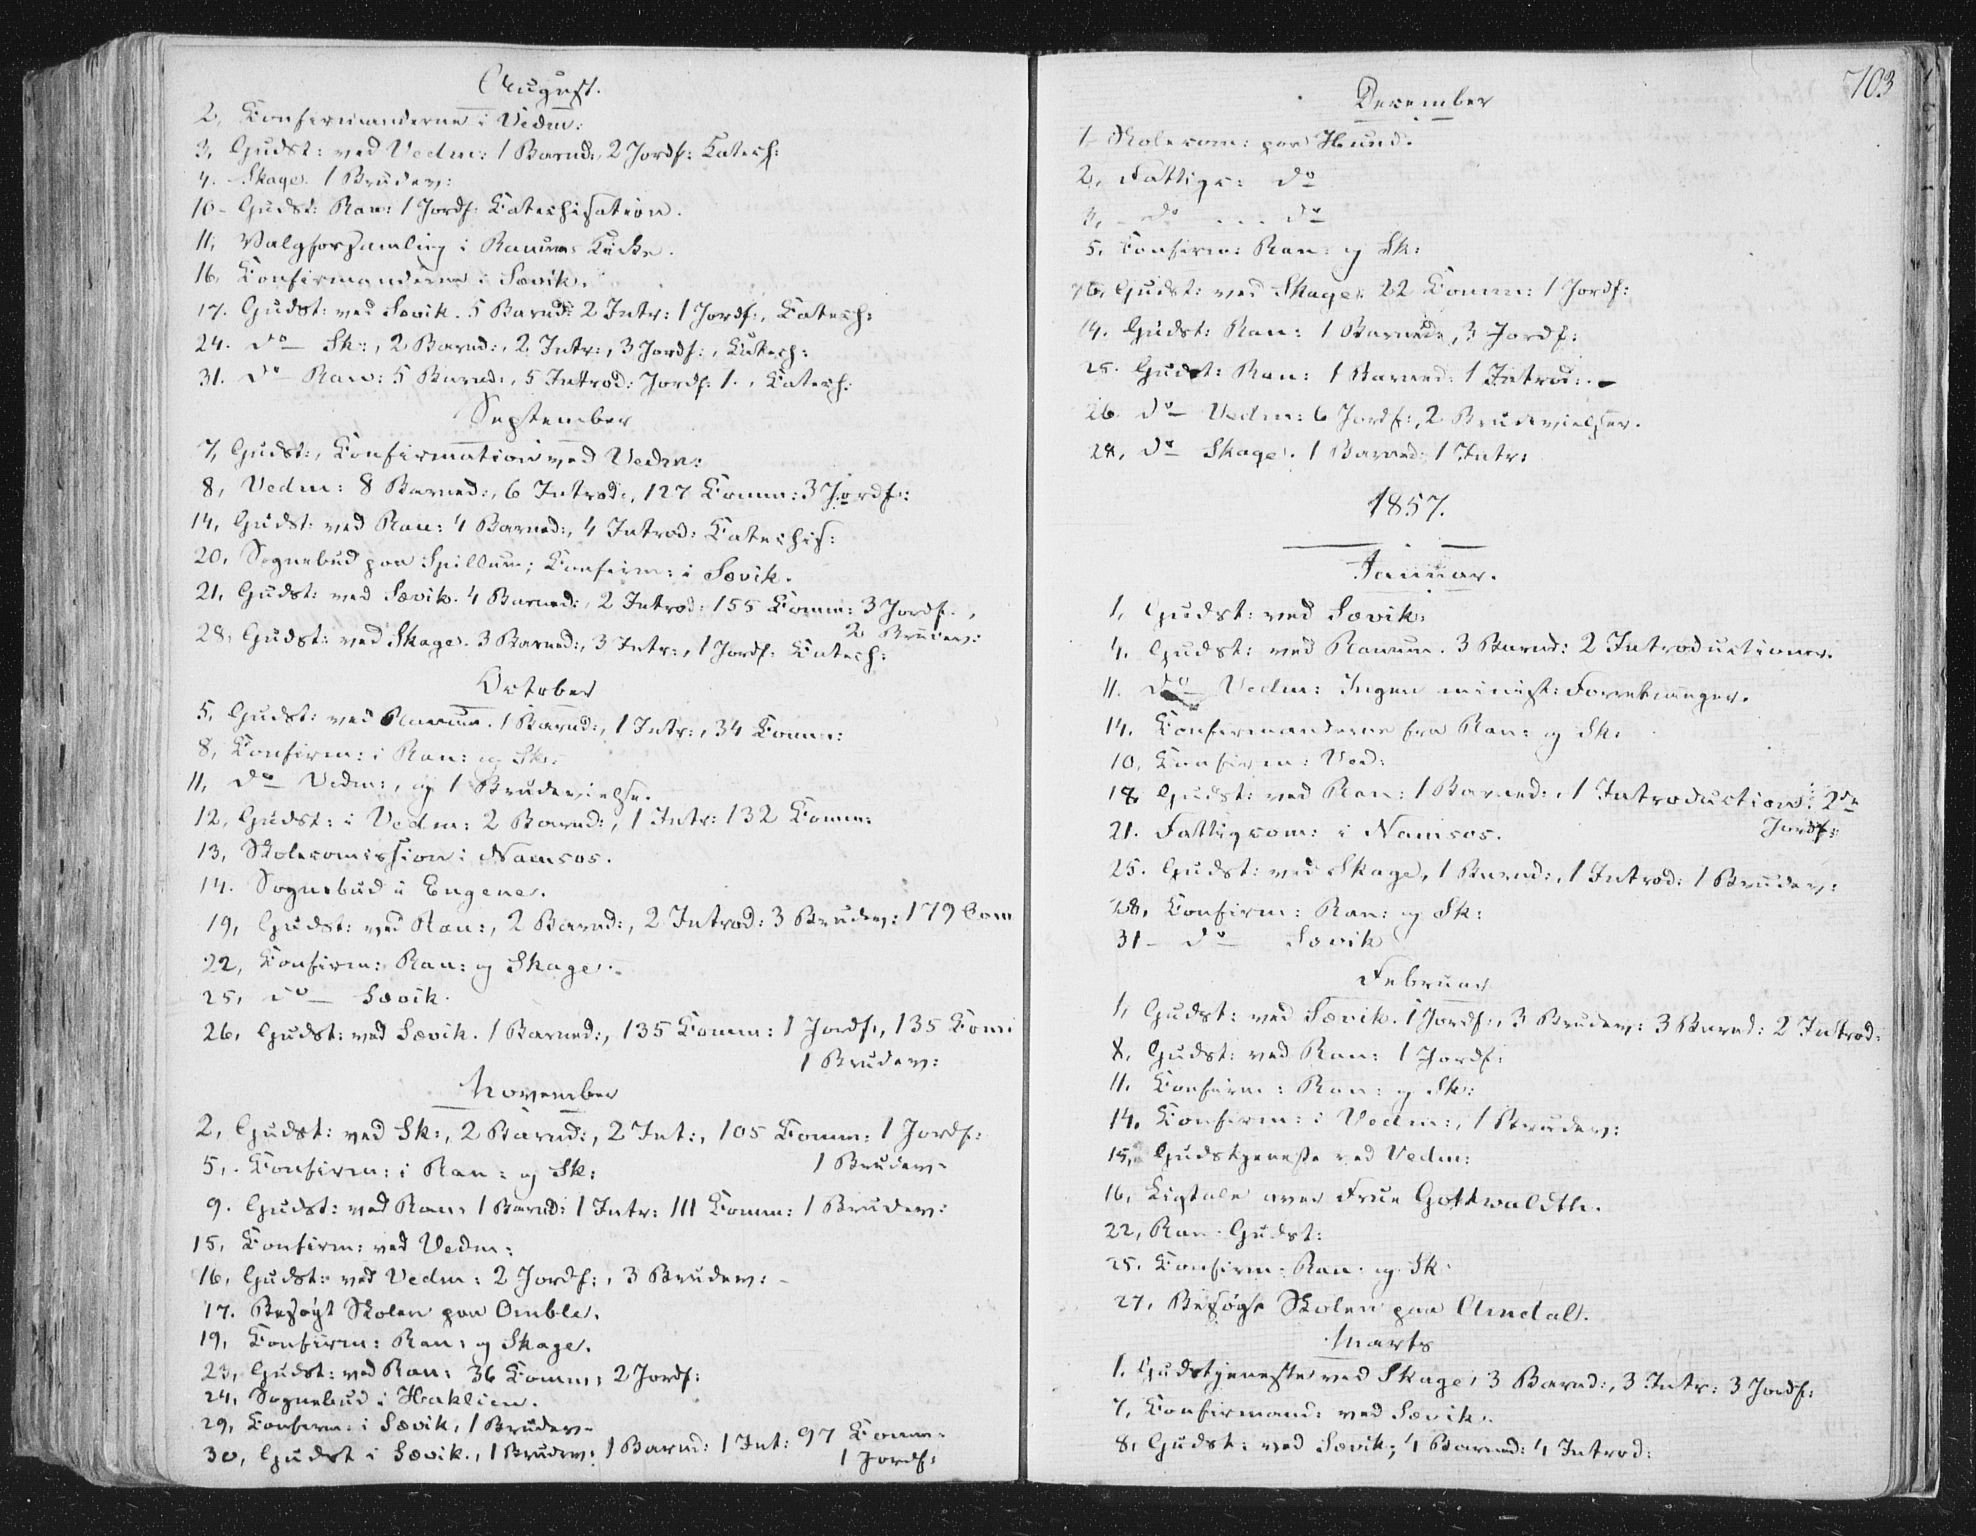 August.
2, Confirmanderne i Vedm:
3, Gudst: ved Vedm: 1 Barnd:, 2 Jordf: Catech:
4. Skage. 1 Brudev:
10- Gudst: Ran: 1 Jordf: Catechisation.
11, Valgforsamling i Ranums Kirke.
16, Confirmanderne i Sævik.
17. Gudst: ved Sævik. 5 Barnd: 2 Intr: 1 Jordf:, Catech:
24. do Sk:, 2 Barnd:, 2 Intr:, 3 Jordf:, Catech:
31. do Ran: 5 Barnd:, 5 Introd: Jordf: 1., Catech:
September
7, Gudst:, Confirmation ved Vedm:
8, Vedm: 8 Barned:, 6 Introd:, 127 Comm: 3 Jordf:
14, Gudst: ved Ran: 4 Barned:, 4 Introd: Catechis:
20, Sognebud paa Spillum; Confirm: i Sævik.
21, Gudst: ved Sævik. 4 Barned:, 2 Introd: 155 Comm: 3 Jordf.,
2 Brudev:
28, Gudst: ved Skage. 3 Barned:, 3 Intr:, 1 Jordf: Catech:
October
5, Gudst: ved Ranum. 1 Barnd:, 1 Intr:, 34 Comm:
8, Confirm: i Ran: og Sk:
11, do Vedm:, og 1 Brudevielse.
12, Gudst: i Vedm: 2 Barnd:, 1 Intr: 132 Comm:
13, Skolecomission i Namsos.
14. Sognebud i Engene.
19, Gudst: ved Ran:, 2 Barnd:, 2 Introd: 3 Brudev: 179 Com
22, Confirm: Ran: og Skage.
25, do Sævik.
26, Gudst: ved Sævik. 1 Barned:, 135 Comm: 1 Jordf:, 135 Com:
1 Brudev:
November
2, Gudst: ved Sk:, 2 Barnd:, 2 Int:, 105 Comm: 1 Jordf:
1 Brudev-
5, Confirm: i Ran: og Sk:
9. Gudst: ved Ran: 1 Barnd: 1 Intr: 111 Comm: 1 Brudev:
15, Confirm: ved Vedm:
16, Gudst: ved Vedm: 2 Jordf:, 3 Brudev: -
17. Besøgt Skolen paa Omble.
19, Confirm: Ran: og Skage.
23, Gudst: ved Ran: 36 Comm: 2 Jordf:
24, Sognebud i Haklien.
29, Confirm: i Sævik, 1 Brudev-
30, Gudst i Sævik., 1 Brudev: 1 Barnd: 1 Int: 97 Comm.
1 Jordf:
703
December
1 Skolecom: paa Hund.
2, Fattigc: do
3, do ... do
5, Confirm: Ran: og Sk:
Gudst: ved Skage: 22 Comm: 1 Jordf:
14. Gudst: Ran: 1 Barned:, 3 Jordf:
25. Gudst: Ran: 1 Barned: 1 Introd: -
26. do Vedm: 6 Jordf:, 2 Brudevielser.
28, do Skage. 1 Barned: 1 Intr:
1857.
Januar.
1, Gudst: ved Sævik:
4. Gudst: ved Ranum. 3 Barnd: 2 Introductioner.
11. do Vedm: Ingen minist: Forretninger.
14. Confirmanderne fra Ran: og Sk:
10, Confirm: Ved:
18, Gudst: ved Ran: 1 Barned:, 1 Introduction: 2de
Jordf:
21. Fattigcom: i Namsos.
25. Gudst: ved Skage, 1 Barnd:, 1 Introd: 1 Brudev:
28, Confirm: Ran: og Sk:
31- do Sævik
Februar
1, Gudst: ved Sævik. 1 Jordf:, 3 Brudev: 3 Barnd: 2 Introd:
8, Gudst: ved Ran: 1 Jordf:
11. Confirm: Ran: og Sk:
14. Confirm: i Vedm:, 1 Brudev:
15, Gudstjeneste ved Vedm:
16, Ligtale over Frue Gottwaldth.
22, Ran: Gudst:
25. Confirm: Ran: og Sk:
27, Besøgt Skolen paa Amdal.
Marts
1. Gudstjeneste ved Skage, 3 Barned:, 3 Intr: 3 Jordf:
7, Confirmand: ved Sævik.
8, Gudst: ved Sævik; 4 Barned: 4 Introd: